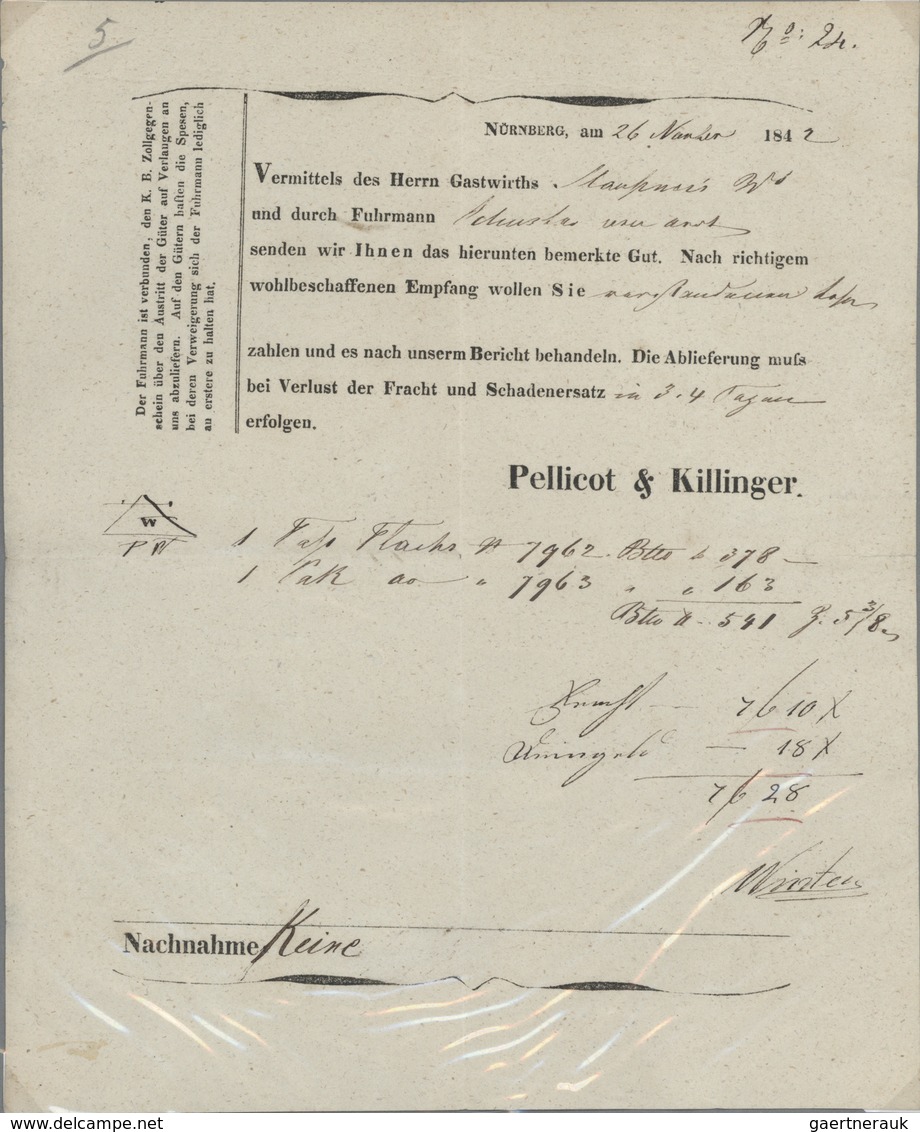 5
No: 24.
NÜRNBERG, am 26 November 1842
Der Fuhrmann ist verbunden, den K. B. Zollgegen-
schein über den Austritt der Güter auf Verlaugen an
uns abzuliefern. Auf den Gütern haften die Spesen,
bei deren Verweigerung sich der Fuhrmann lediglich
an erstere zu halten hat.
Vermittels des Herrn Gastwirths
und durch Fuhrmann
senden wir Ihnen das hierunten bemerkte Gut. Nach richtigem
wohlbeschaffenen Empfang wollen Sie
zahlen und es nach unserm Bericht behandeln. Die Ablieferung muſs
bei Verlust der Fracht und Schadenersatz in 3. 4 Tagen
erfolgen.
Pellicot & Killinger.
W
1 Faß Flachs 7962 Btto 378
1 Pak do " 7963 " " 163
Btto 541 5 3/8
Fracht 7 f 10 x
18 x
7 f 28
Nachnahme Keine
gaertnerauk
www.delcampe.net